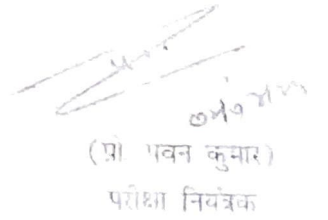 (प्रो पवन कुमार)
परीक्षा नियंत्रक